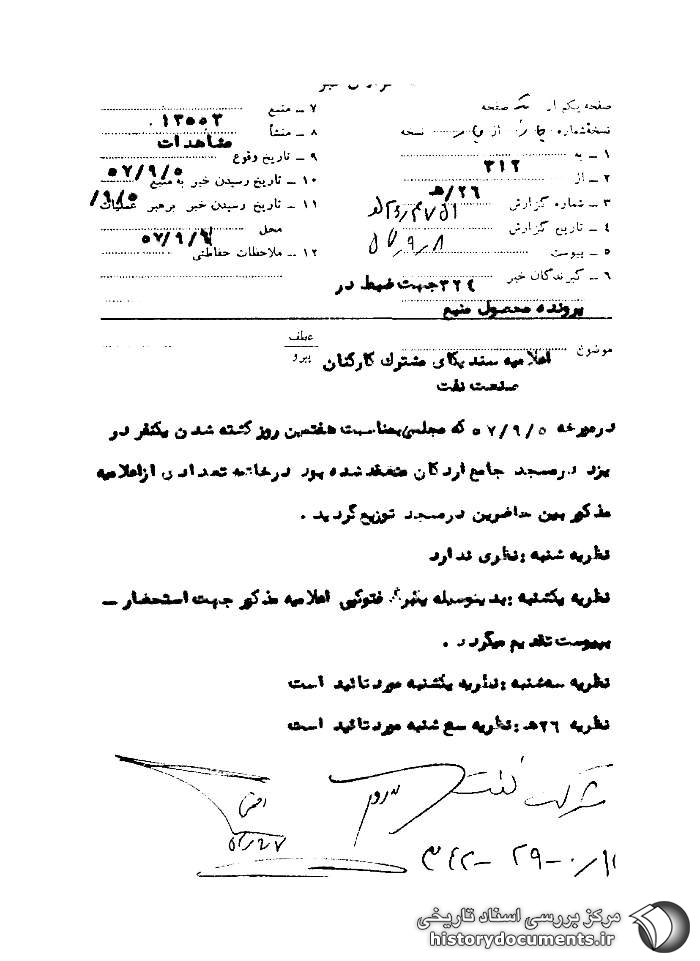 گزارش خبر
صفحه یکم از یک صفحه
نسخه شماره چهار از چهار نسخه
۱ ــ به ۳۱۲
۲ ــ از ۲۶/ هـ
۳ ــ شماره گزارش
۴ ــ تاریخ گزارش ۵۷/۹/۸
۵ ــ پیوست
۶ ــ گیرندگان خبر ۳۲۴ جهت ضبط در
پرونده محصول منبع
۷ ــ منبع ۱۳۵۵۳
۸ ــ منشأ مشاهدات
۹ ــ تاریخ وقوع ۵۷/۹/۵
۱۰ ــ تاریخ رسیدن خبر به منبع /۹/۵
۱۱ ــ تاریخ رسیدن خبر برهبر عملیات
محل ۵۷/۹/۷
۱۲ ــ ملاحظات حفاظتی
موضوع اعلامیه سندیکای مشترک کارکنان
صنعت نفت
عطف
پیرو
درمورخه ۵۷/۹/۵ که مجلسی بمناسبت هفتمین روز کشته شدن یکنفر در
یزد درمسجد جامع اردکان منعقد شده بود درخاتمه تعدادی ازاعلامیه
مذکور بین حاضرین درمسجد توزیع گردید .
نظریه شنبه : نظری ندارد
نظریه یکشنبه : بدینوسیله فتوکپی اعلامیه مذکور جهت استحضار ــ
بپیوست تقدیم میگردد .
نظریه سه‌شنبه : نظریه یکشنبه مورد تائید است
نظریه ۲۶هـ : نظریه سه شنبه مورد تائید است
شرکت نفت
مرکز بررسی اسناد تاریخی
historydocuments.ir